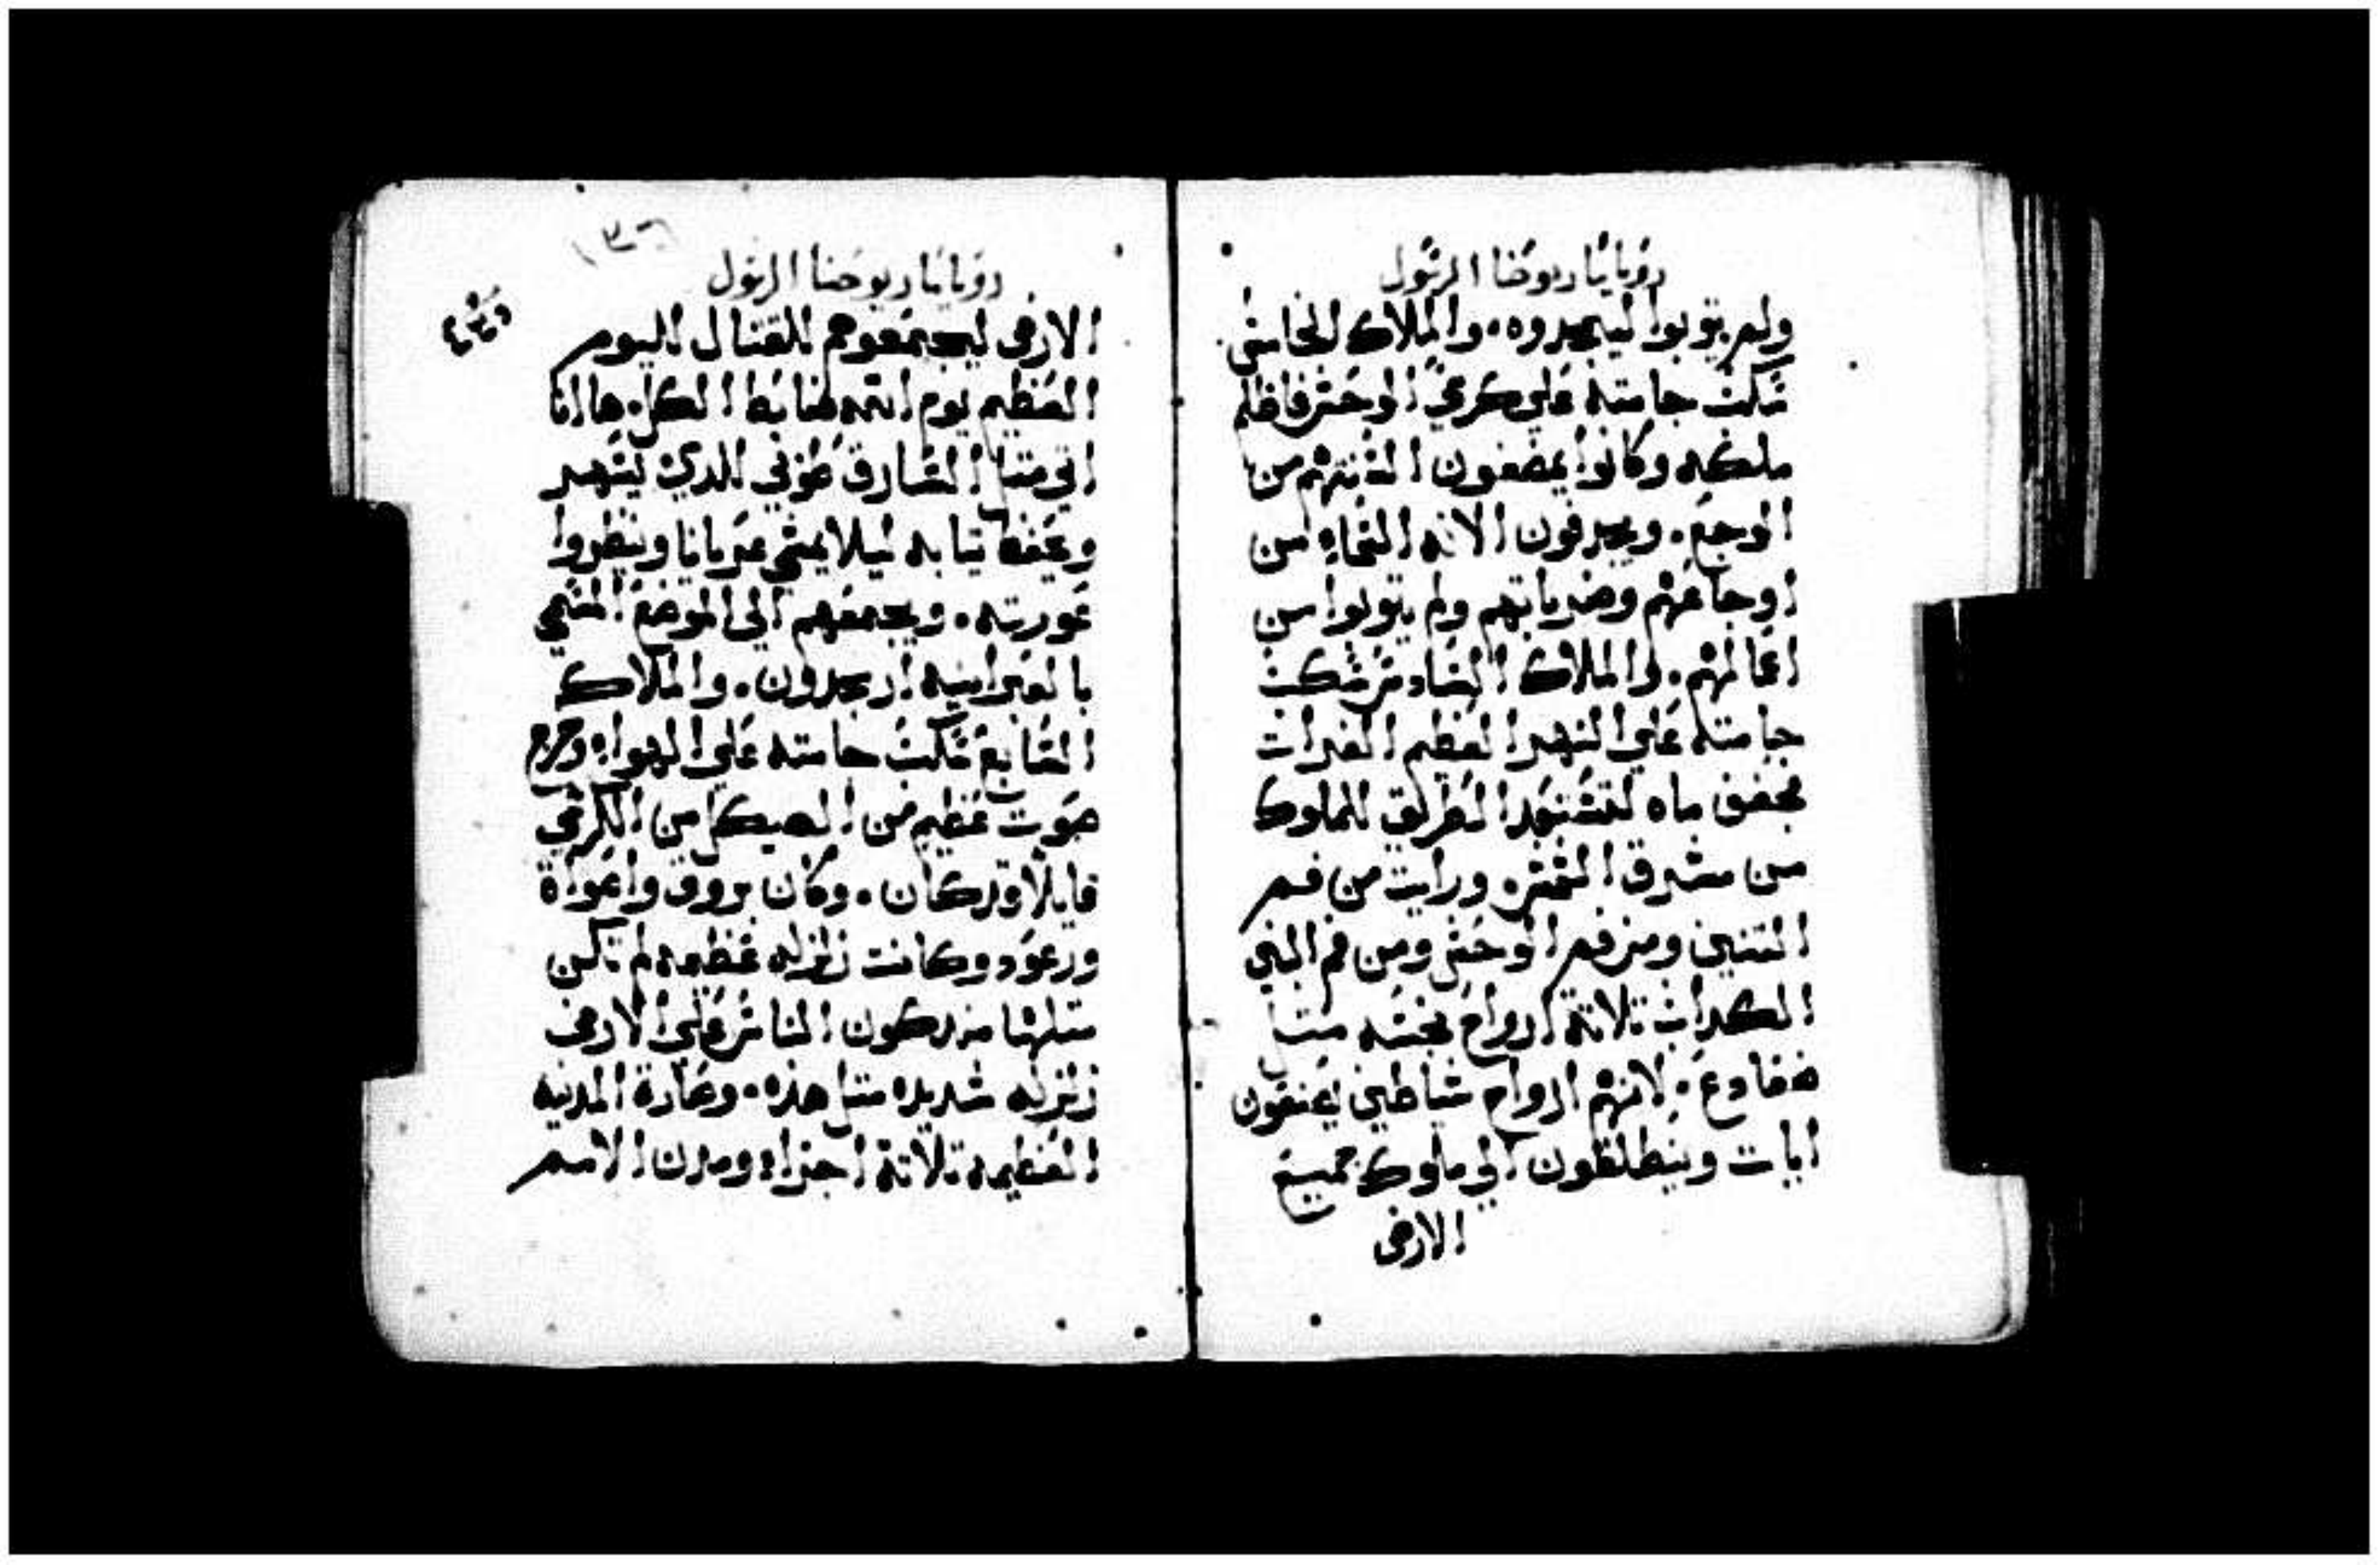 رويا مار يوحنا الرسول
ولم يتوبوا ليمجدوه. والملاك الخامس
سكب جامته علي كرسي الوحش فاظلم
ملكه وكانوا يمضغون السنتهم من
الوجع. ويجدفون الاه السماء من
اوجاعهم وضرباتهم ولم يتوبوا من
اعمالهم. والملاك السادس سكب
جامته علي النهر العظيم الفرات
فجفف ماه لتستعد الطريق للملوك
من مشرق الشمس. ورايت من فم
التنين ومن فم الوحش ومن فم النبي
الكداب تلاتة ارواح نجسه متل
ضفادع. لانهم ارواح شياطين يصنعون
ايات وينطلقون الي ملوك جميع
الارض
رويا مار يوحنا الرسول
الارض ليجمعوهم للقتال اليوم
العظيم يوم الله ضابط الكل. ها انا
اتي متل السارق طوبي للدي يسهر
ويحفظ تيابه ليلا يمشي عريانا وينظروا
عورته. ويجمعهم الي الموضع المسمي
بالعبرانيه ارمجدون. والملاك
السابع سكب جامته علي الهواء وخرج
صوت عظيم من الهيكل من الكرسي
قايلا قد كان. وكان بروق واصواة
ورعود وكانت زلزله عظيمه لم تكن
متلها مند كون الناس علي الارض
زلزله شديده متل هده. وصارة المدينه
العظيمه تلاتة اجزاء ومدن الامم